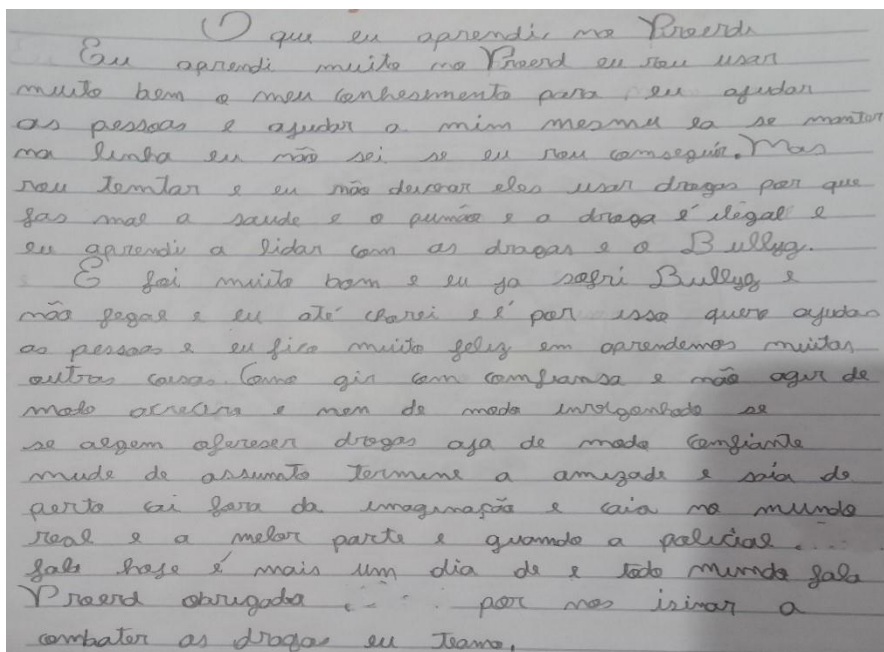 O que eu aprendi, no Proerd
Eu aprendi muito no Proerd eu vou usar
muito bem o meu conhesimento para eu ajudar
as pessoas e ajudar a mim mesmu ea se manter
na linha eu não sei se eu vou comseguir. Mas
vou temtar e eu não deixar eles usar drogas por que
fas mal a saude e o pumão e a droga é ilegal e
eu aprendi a lidar com as drogas e o Bullyg.
E foi muito bom e eu ja sofri Bullyg e
não legal e eu até chorei e é por isso quero ajudas
as pessoas e eu fico muito feliz em aprendemos muitas
outras coisas. Como gir com comfiansa e não agir de
modo acrecivo e nem de modo invergonhado se
se algem afereser drogas aja de modo comfiante
mude de assumto termine a amizade e saia de
perto cai fora da imaginação e caia no mundo
real e a melor parte e quamdo a policial ....
fala hoje é mais um dia de e todo mumdo fala
Proerd obrigada .... por nos isinar a
combater as drogas eu teamo.